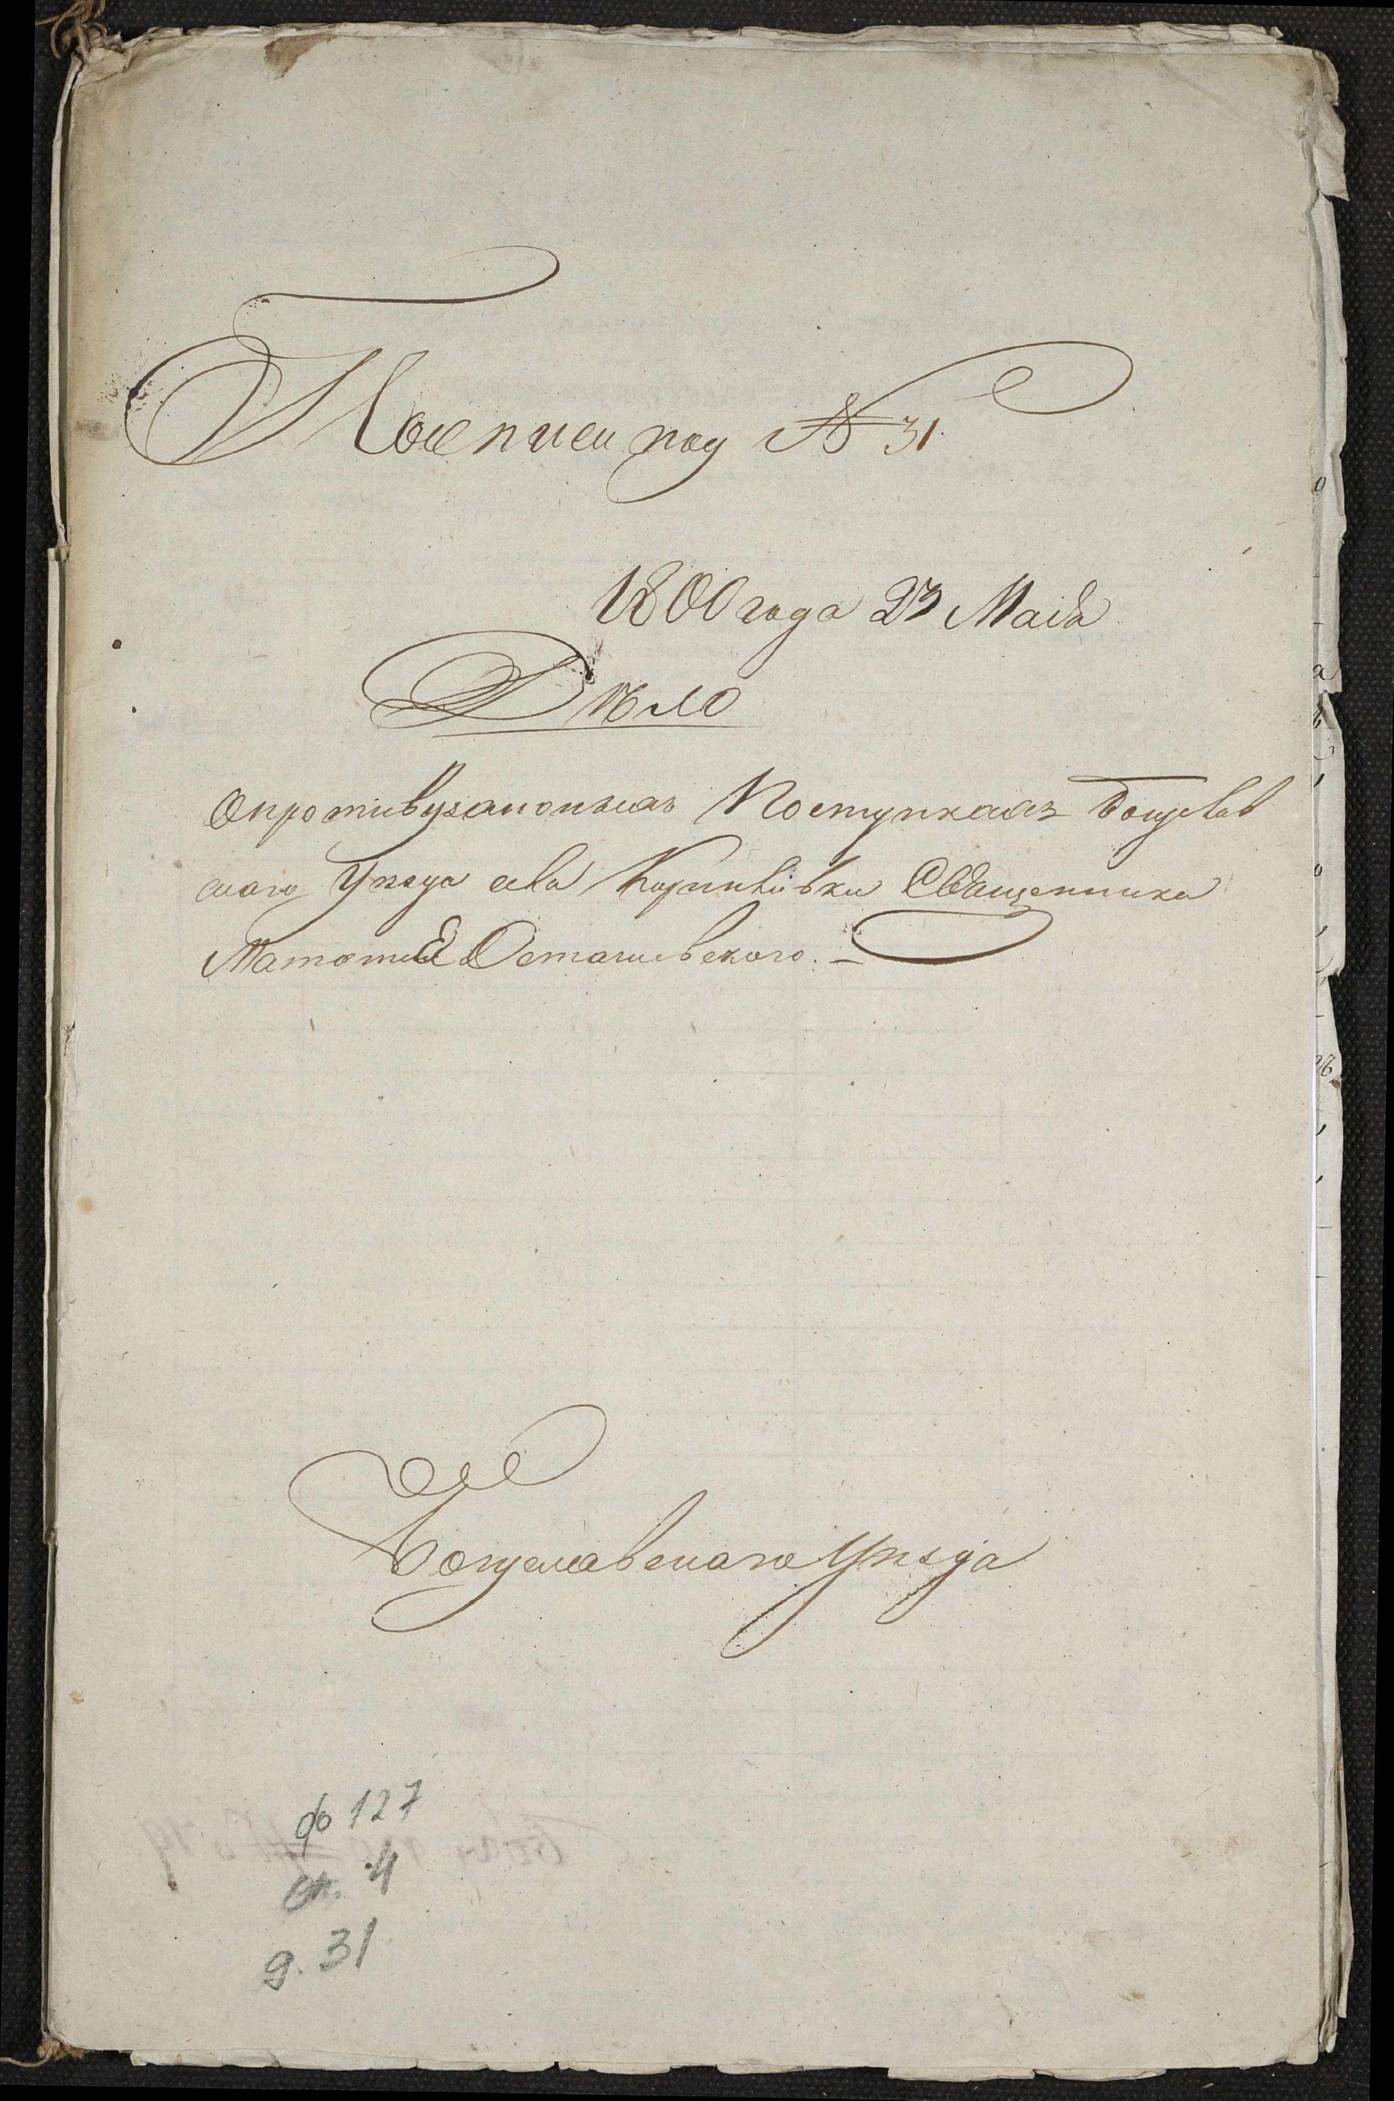 Поописи под № 31.
1800 года 23 Маѣя
Дѣло
Опротивузаконныхъ Поступкахъ Богуслав
скаго Уѣзда села Карапишки Священника
Матфея Осташевского. —
Богуславскаго Уѣзда
ф 127
оп. 4
д. 31